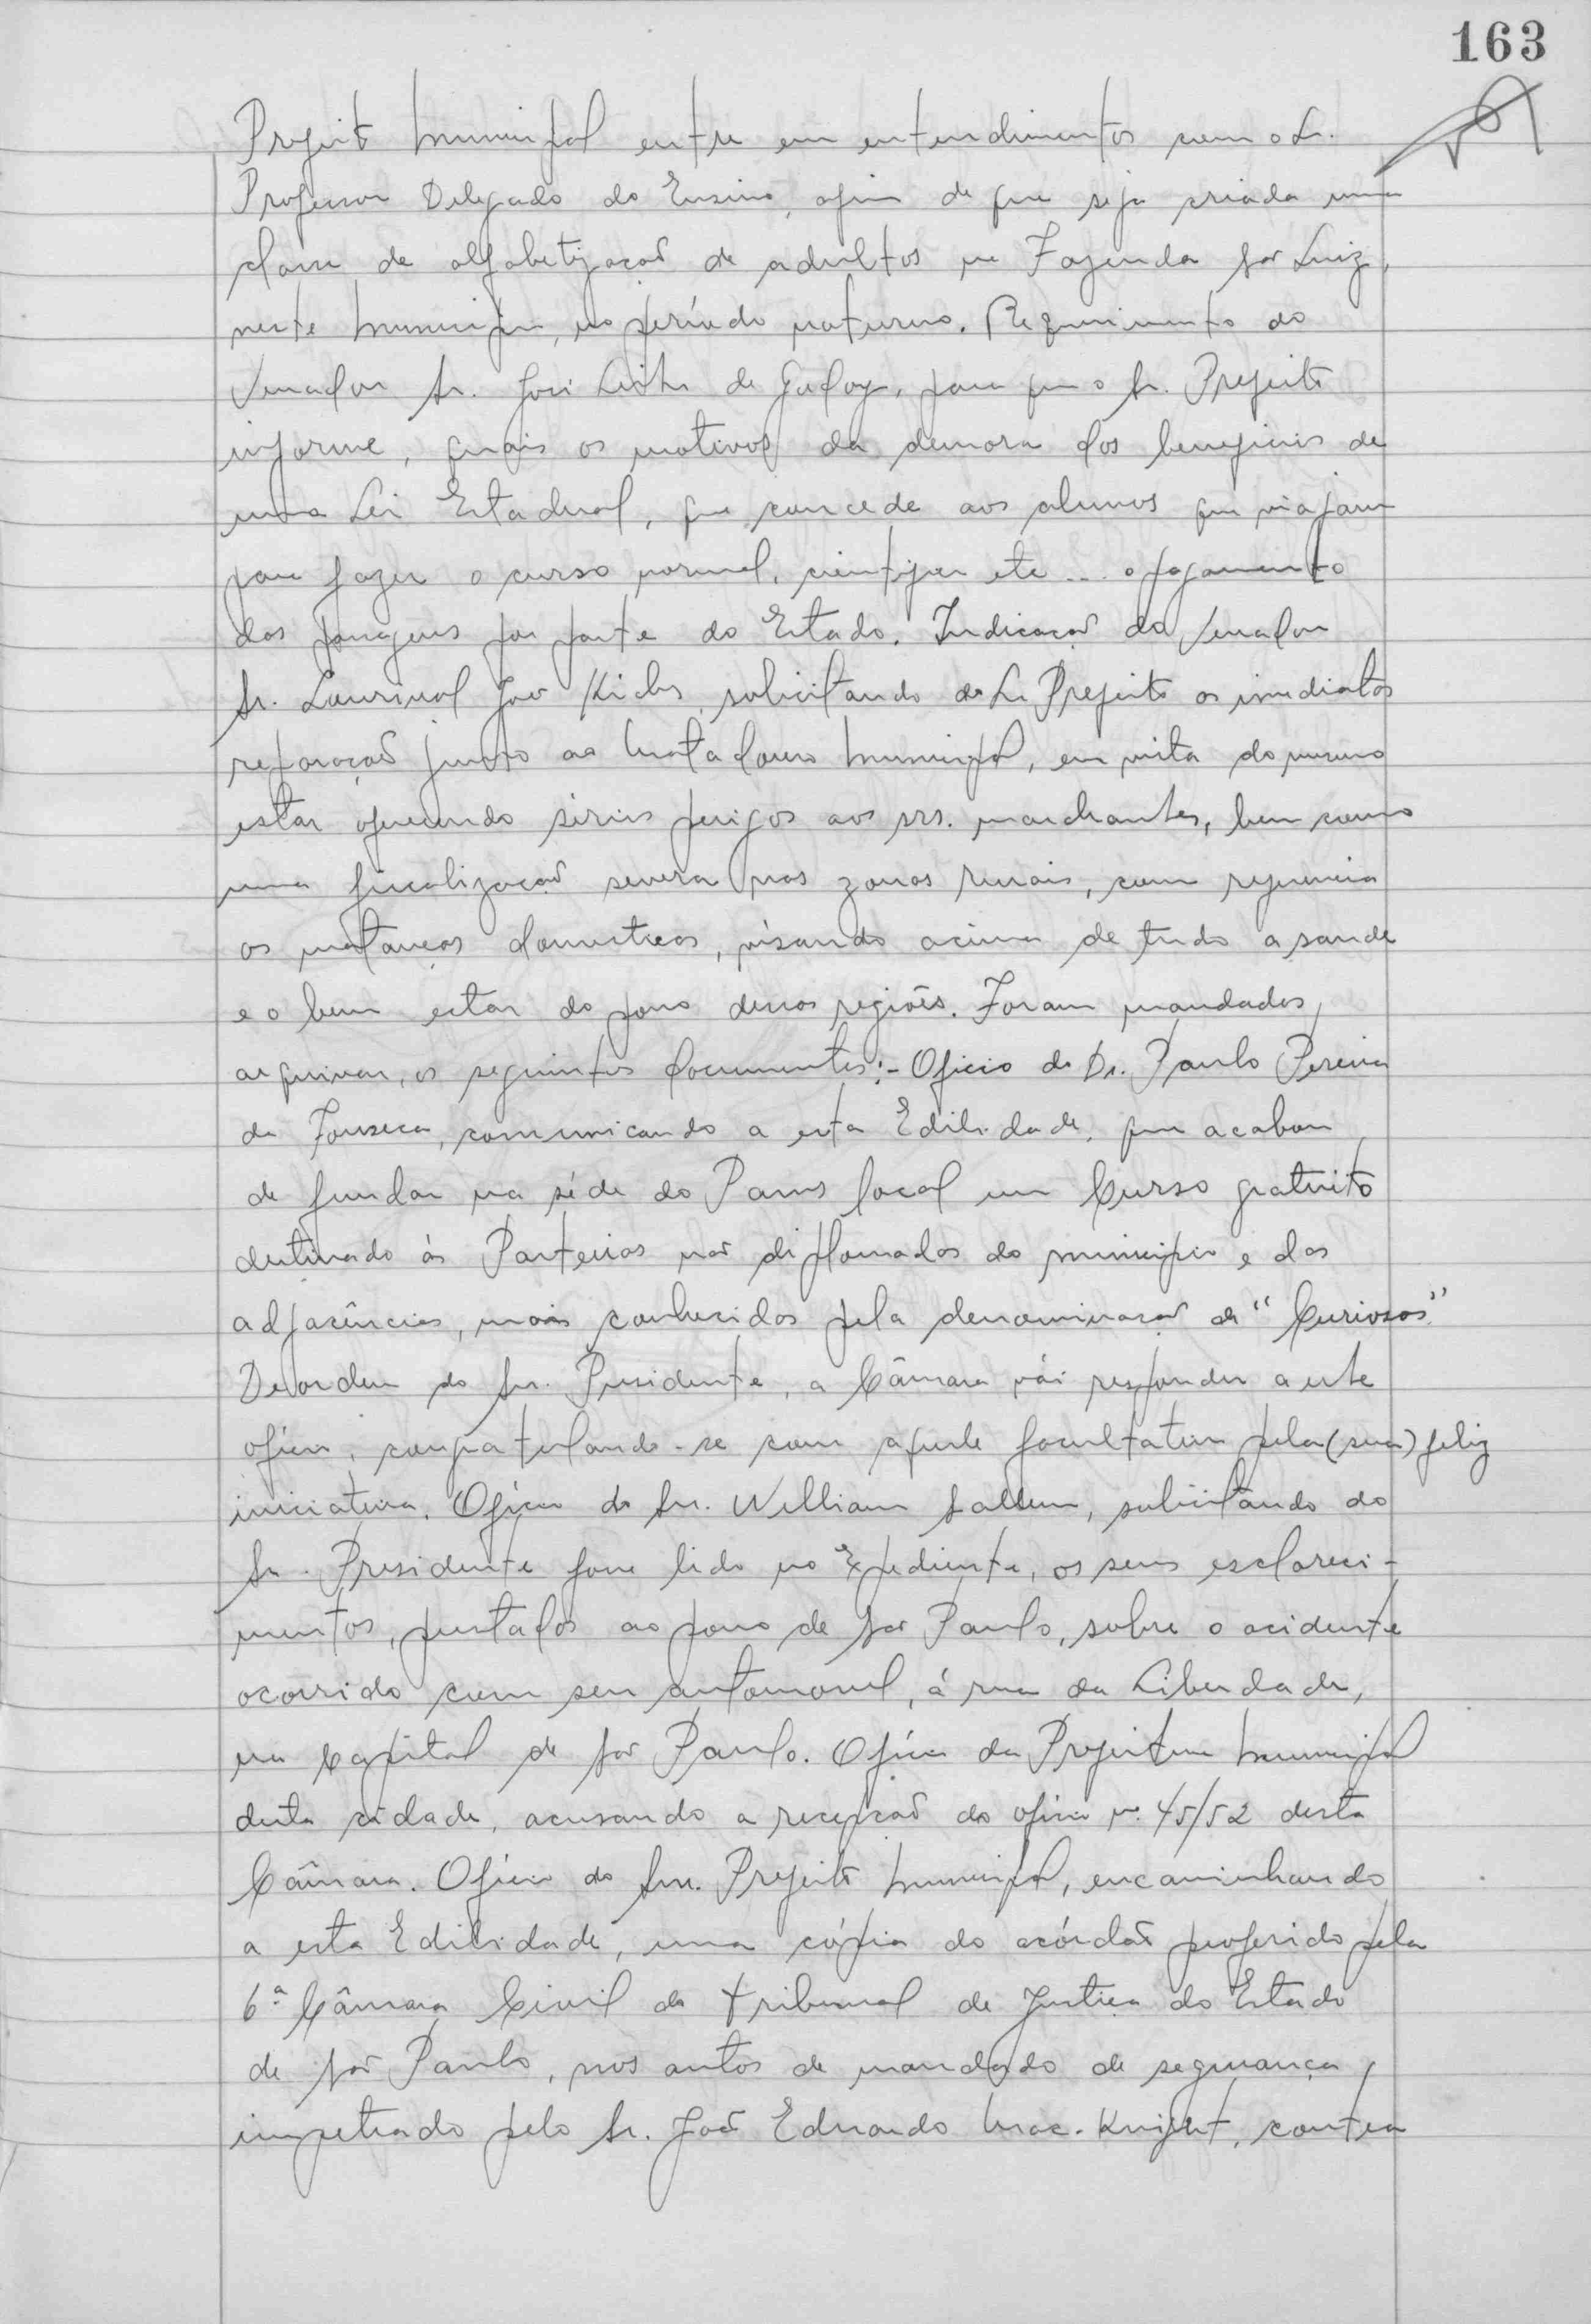 163
Prefeito Municipal entre em entendimentos com o Sr.
Professor Delegado do Ensino, afim de que seja criada uma
classe de alfabetização de adultos na Fazenda São Luiz,
neste Municipio, no período noturno. Requerimento do
Vereador Sr. José Leite de Godoy, para que o Sr. Prefeito
informe, quais os motivos da demora dos beneficios de
uma Lei Estadual, que concede aos alunos que viajam
para fazer o curso normal, cientifico etc... o pagamento
das passagens por parte do Estado. Indicação do Vereador
Sr. Lourival João, solicitando do Sr Prefeito as imediatas
reparação junto ao Matadouro Municipal, em vista do mesmo
estar oferecendo sérios perigos aos srs. marchantes, bem como
uma fiscalização severa nas zonas rurais, com referencia
as matanças domesticas, visando acima de tudo a saude
e o bem estar do povo dessas regiões. Foram mandados,
arquivar, os seguintes documentos:- Oficio do Dr. Paulo Pereira
da Fonseca, comunicando a esta Edilidade, que acabou
de fundar na séde do Pams local um Curso gratuito
destinado às Parteiras não diplomadas do municipio e das
adjacências, mais conhecidas pela denominação de "Curiosas"
De ordem do Snr. Presidente, a Câmara vái responder a este
oficio, congratulando-se com aquele facultativo pela (sua) feliz
iniciativa. Oficio do Snr. William Sallum, solicitando do
Sr. Presidente fosse lido no Expediente, os seus esclareci-
mentos, prestados ao povo de São Paulo, sobre o acidente
ocorrido com seu automovel, á rua da Liberdade,
na Capital de São Paulo. Oficio da Prefeitura Municipal
desta cidade, acusando a recepção do oficio nº. 45/52 desta
Câmara. Oficio do Snr. Prefeito Municipal, encaminhando
a esta Edilidade, uma cópia do acórdão proferido pela
6ª Câmara Civil do Tribunal de Justiça do Estado
de São Paulo, nos autos de mandado de segurança,
impetrado pelo Sr. João Eduardo Mac-Knight, contra